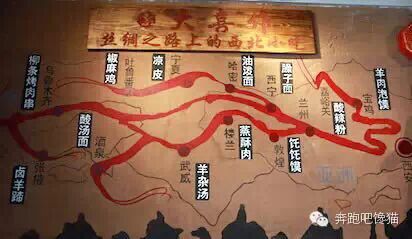 丝绸之路上的西北小吃
柳条烤肉串
乌鲁木齐
椒麻鸡
吐鲁番
凉皮
宁夏
哈密
油泼面
西宁
臊子面
嘉峪关
羊肉泡馍
宝鸡
酸辣粉
兰州
酸汤面
酒泉
张掖
卤羊蹄
武威
羊杂汤
楼兰
蒸酥肉
敦煌
饦饦馍
西安
奔跑吧馋猫